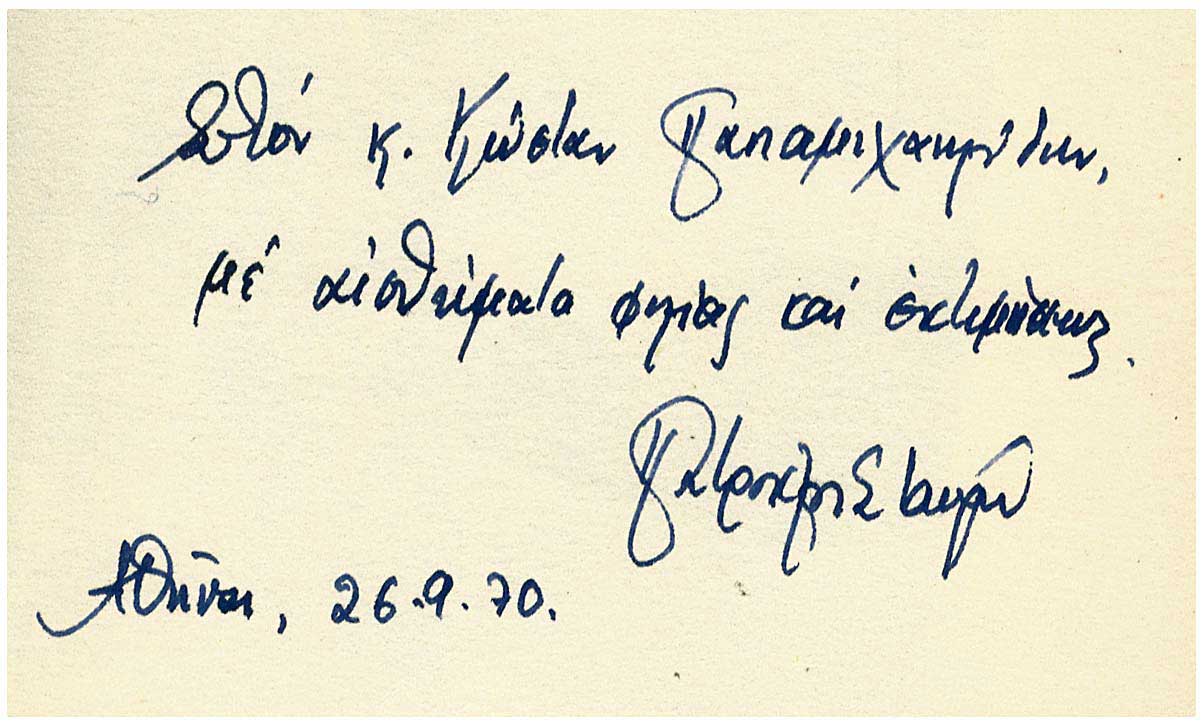 Στόν κ. Κώσταν Παπαμιχαηλίδην,
μέ αἰσθήματα φιλίας καί ἐκτιμήσεως.
Πατροκλῆς Σταύρου
Ἀθῆναι, 26.9.70.